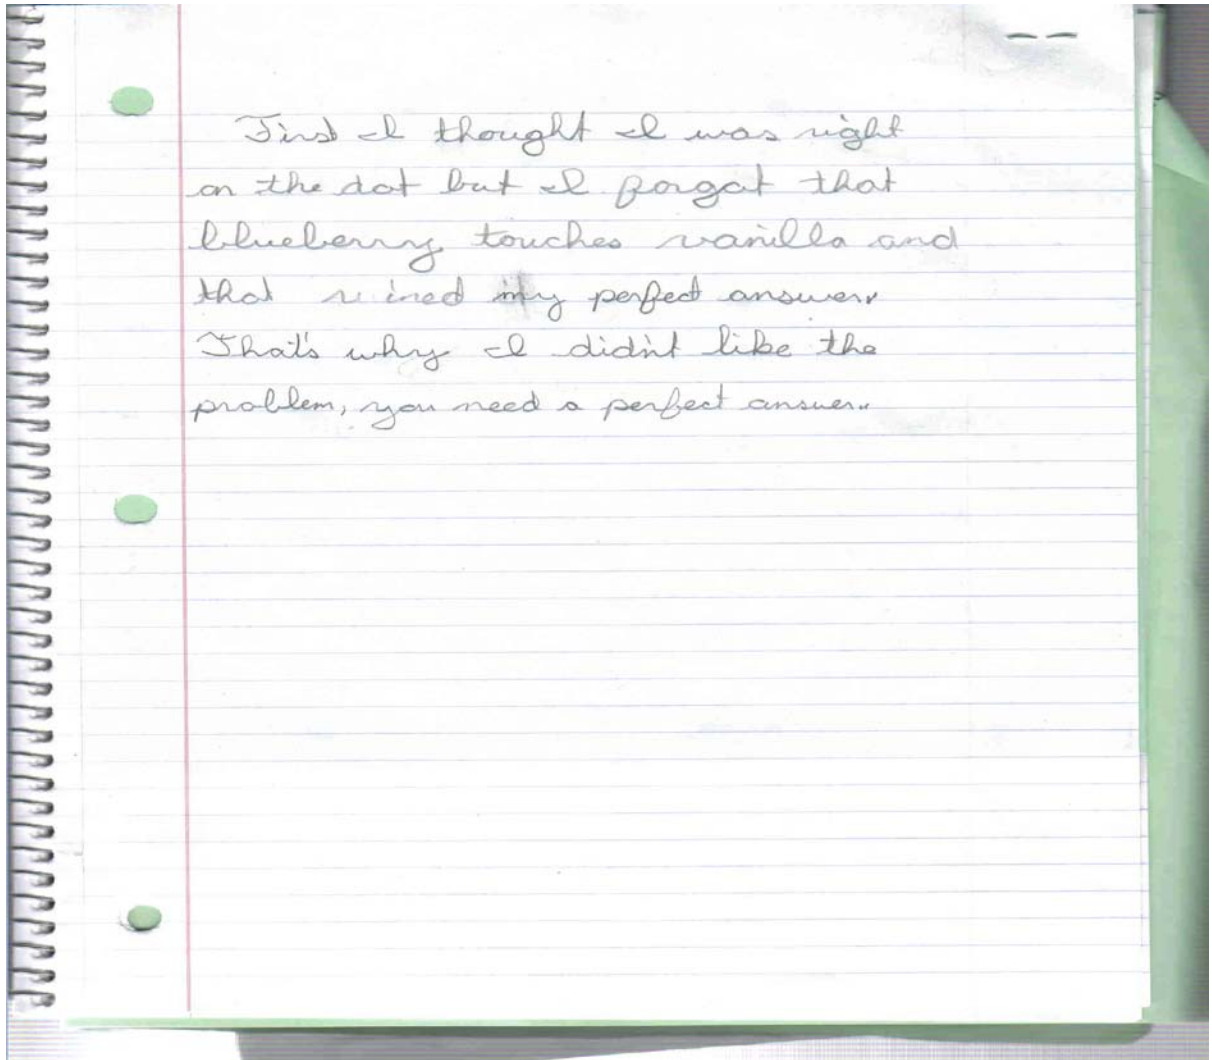 First I thought I was right
on the dot but I forgot that
blueberry touches vanilla and
that ruined my perfect answer.
That's why I didn't like the
problem, you need a perfect answer.